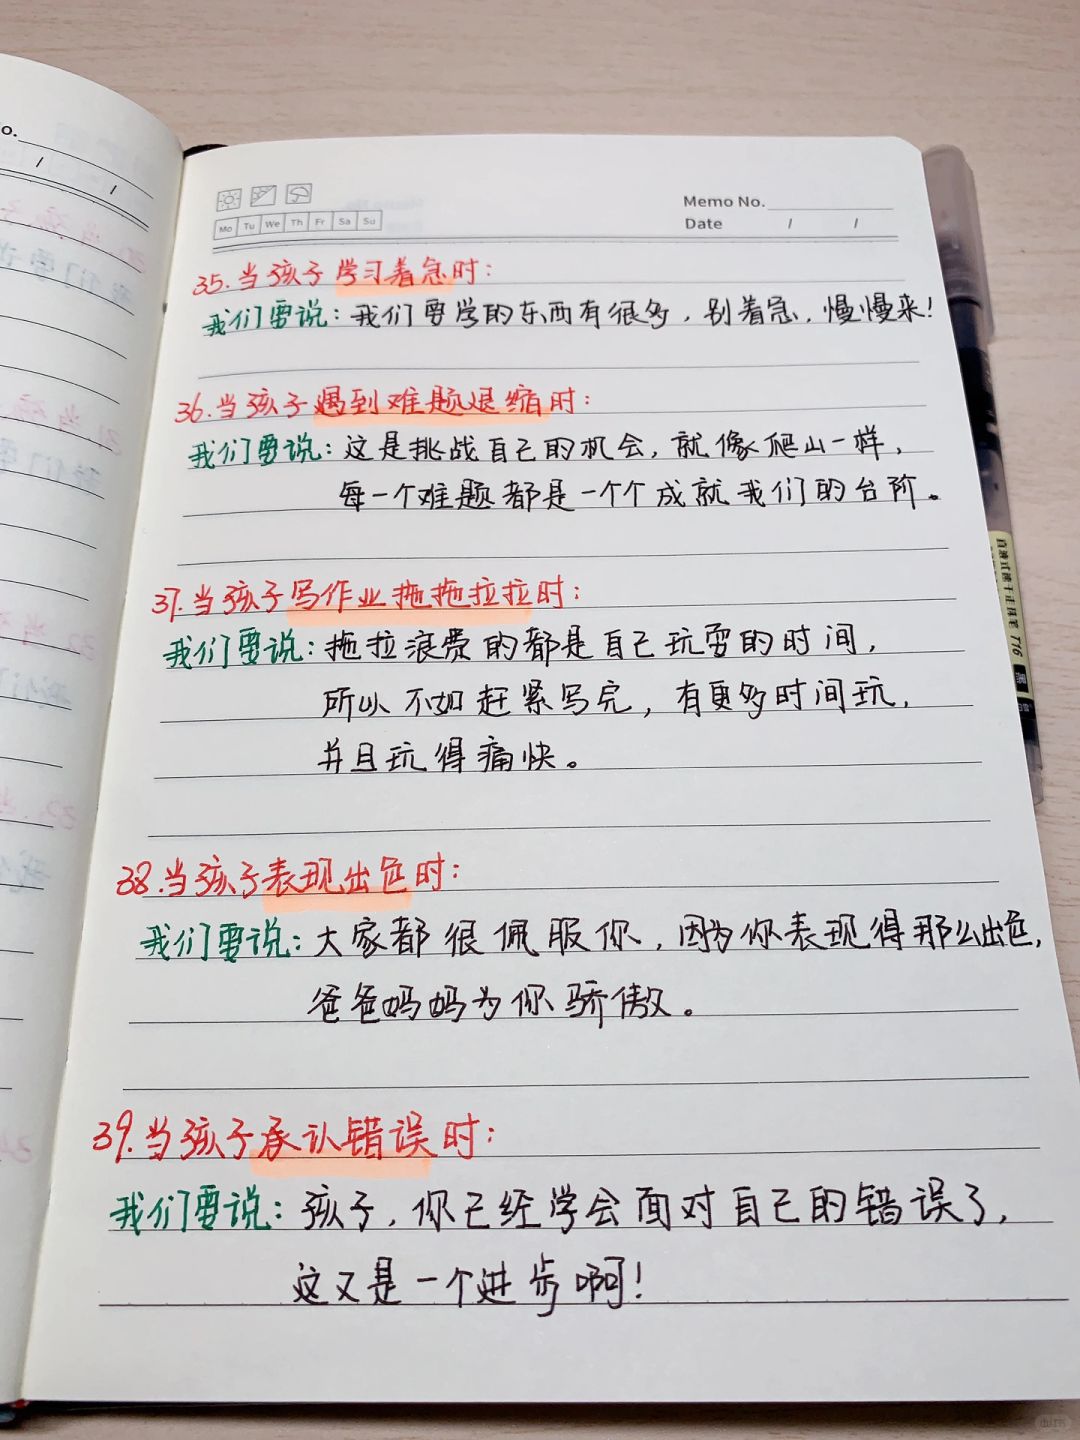 o.
/ /
Mo Tu We Th Fr Sa Su
Memo No.
Date / /
35.当孩子学习着急时:
我们要说:我们要学的东西有很多,别着急,慢慢来!
36.当孩子遇到难题退缩时:
我们要说:这是挑战自己的机会,就像爬山一样,
每一个难题都是一个个成就我们的台阶。
37.当孩子写作业拖拖拉拉时:
我们要说:拖拉浪费的都是自己玩耍的时间,
所以不如赶紧写完,有更多时间玩,
并且玩得痛快。
38.当孩子表现出色时:
我们要说:大家都很佩服你,因为你表现得那么出色,
爸爸妈妈为你骄傲。
39.当孩子承认错误时:
我们要说:孩子,你已经学会面对自己的错误了,
这又是一个进步啊!
直液式 走珠笔 T16 黑